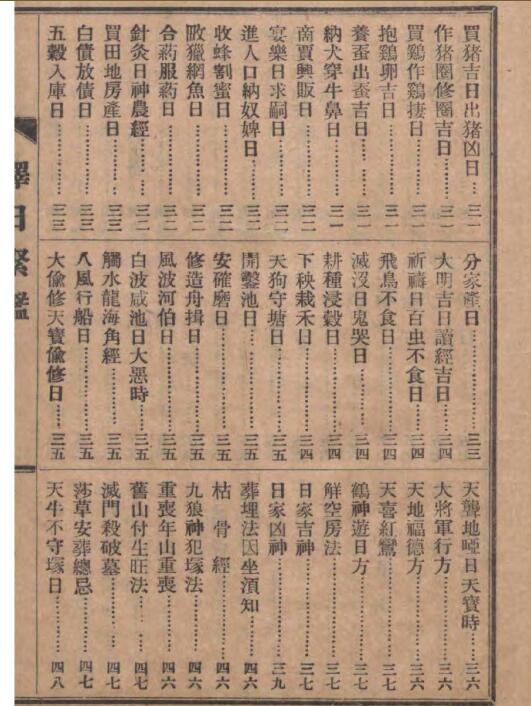 買猪吉日出猪凶日…三一
作猪圈修圈吉日…三一
買鷄作鷄棲日…三一
抱鷄卵吉日…三一
養蚕出蚕吉日…三一
納犬穿牛鼻日…三一
商賈興販日…三二
宴樂日求嗣日…三二
進人口納奴婢日…三二
收蜂割蜜日…三二
畋獵網魚日…三二
合葯服葯日…三二
針灸日神農經…三二
買田地房產日…三三
白債放債日…三三
五穀入庫日…三三
分家產日…三三
大明吉日讀經吉日…三四
祈禱日百虫不食日…三四
飛鳥不食日…三四
滅沒日鬼哭日…三四
耕種浸穀日…三四
下秧栽禾日…三四
天狗守塘日…三五
開鑿池日…三五
安碓磨日…三五
修造舟揖日…三五
風波河伯日…三五
白波咸池日大惡時…三五
觸水龍海角經…三五
八風行船日…三五
大偸修天寶偸修日…三五
天聾地啞日天寶時…三六
大將軍行方…三六
天地福德方…三六
天喜紅鸞…三七
鶴神遊日方…三七
觧空房法…三七
日家吉神…三七
日家凶神…三九
葬埋法因坐湏知…四六
枯骨經…四六
九狼神犯塚法…四六
重喪年山重喪…四六
舊山付生旺法…四七
滅門殺破墓…四七
莎草安葬總忌…四七
天牛不守塚日…四八
擇日緊鑑